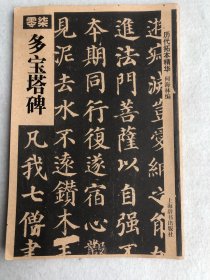 零柒
多宝塔碑
历代拓本精华
上海辞书出版社
進法門菩薩以自强
本期同行復遂宿心
見泥去水不遠鑽木
凡我七僧聿